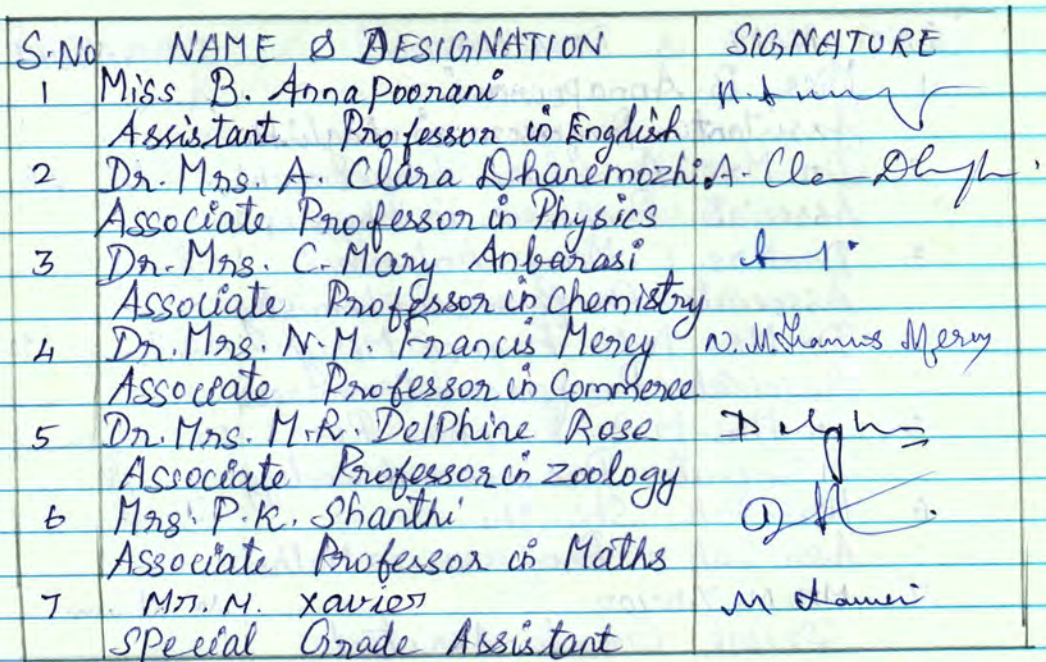 S.No NAME & DESIGNATION SIGNATURE
1 Miss B. AnnaPoorani
Assistant Professor in English
2 Dr. Mrs. A. Clara Dhanemozhi A. Cla
Associate Professor in Physics
3 Dr. Mrs. C. Mary Anbarasi
Associate Professor in Chemistry
4 Dr. Mrs. N.M. Francis Mercy N. M Francis Mercy
Associate Professor in Commerce
5 Dr. Mrs. M.R. DelPhine Rose
Associate Professor in Zoology
6 Mrs. P.K. Shanthi
Associate Professor in Maths
7 Mr. M. Xavier
Special Grade Assistant